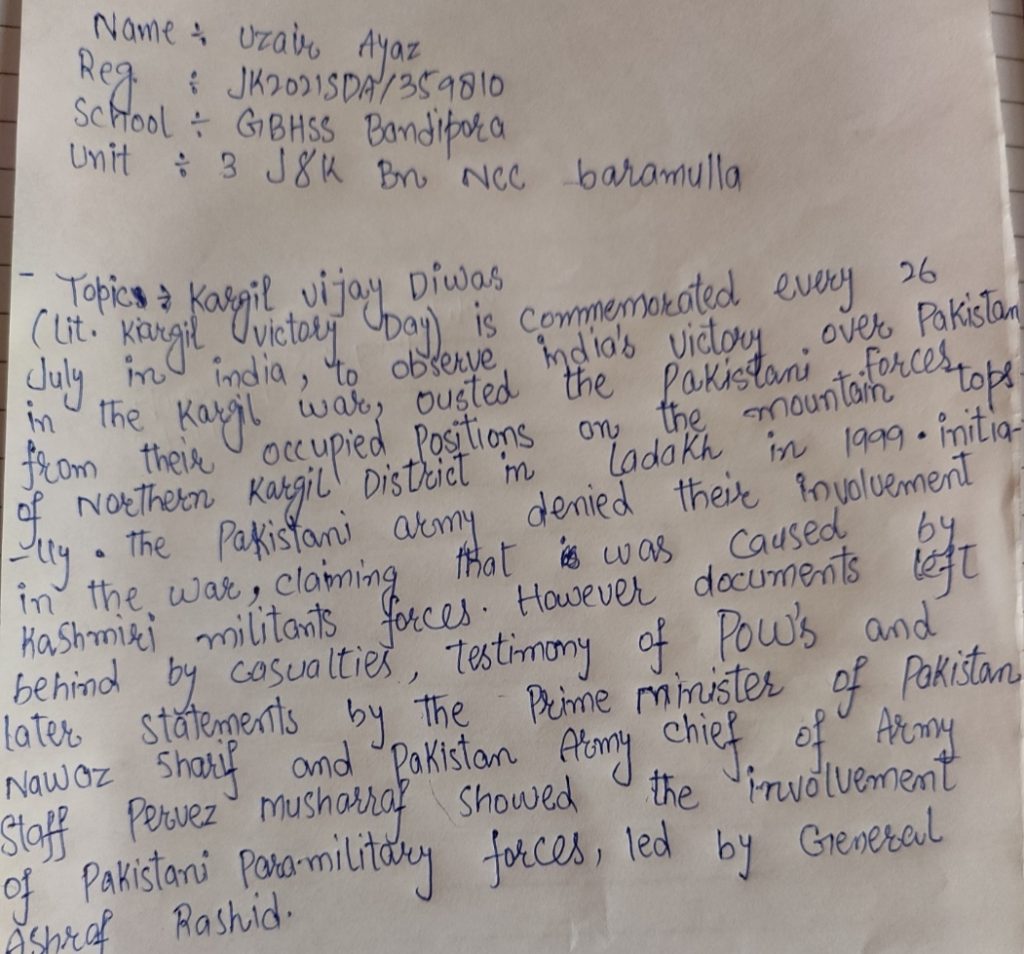 Name ÷ Uzair Ayaz
Reg. : JK2021SDA/359810
School ÷ GBHSS Bandipora
Unit ÷ 3 J&K Bn NCC baramulla
- Topic → Kargil vijay Diwas
(lit. Kargil victory Day) is commemorated every 26
July in india, to observe india's victory over Pakistan
in the Kargil war, ousted the Pakistani forces
from their occupied Positions on the mountain tops
of Northern Kargil District in Ladakh in 1999. initia-
-lly. The Pakistani army denied their involvement
in the war, claiming that is was caused by
Kashmiri militants forces. However documents left
behind by casualties, testimony of POW's and
later statements by the Prime minister of Pakistan
Nawaz Sharif and Pakistan Army chief of Army
Staff Pervez musharraf showed the involvement
of Pakistani Para-military forces, led by General
Ashraf Rashid.